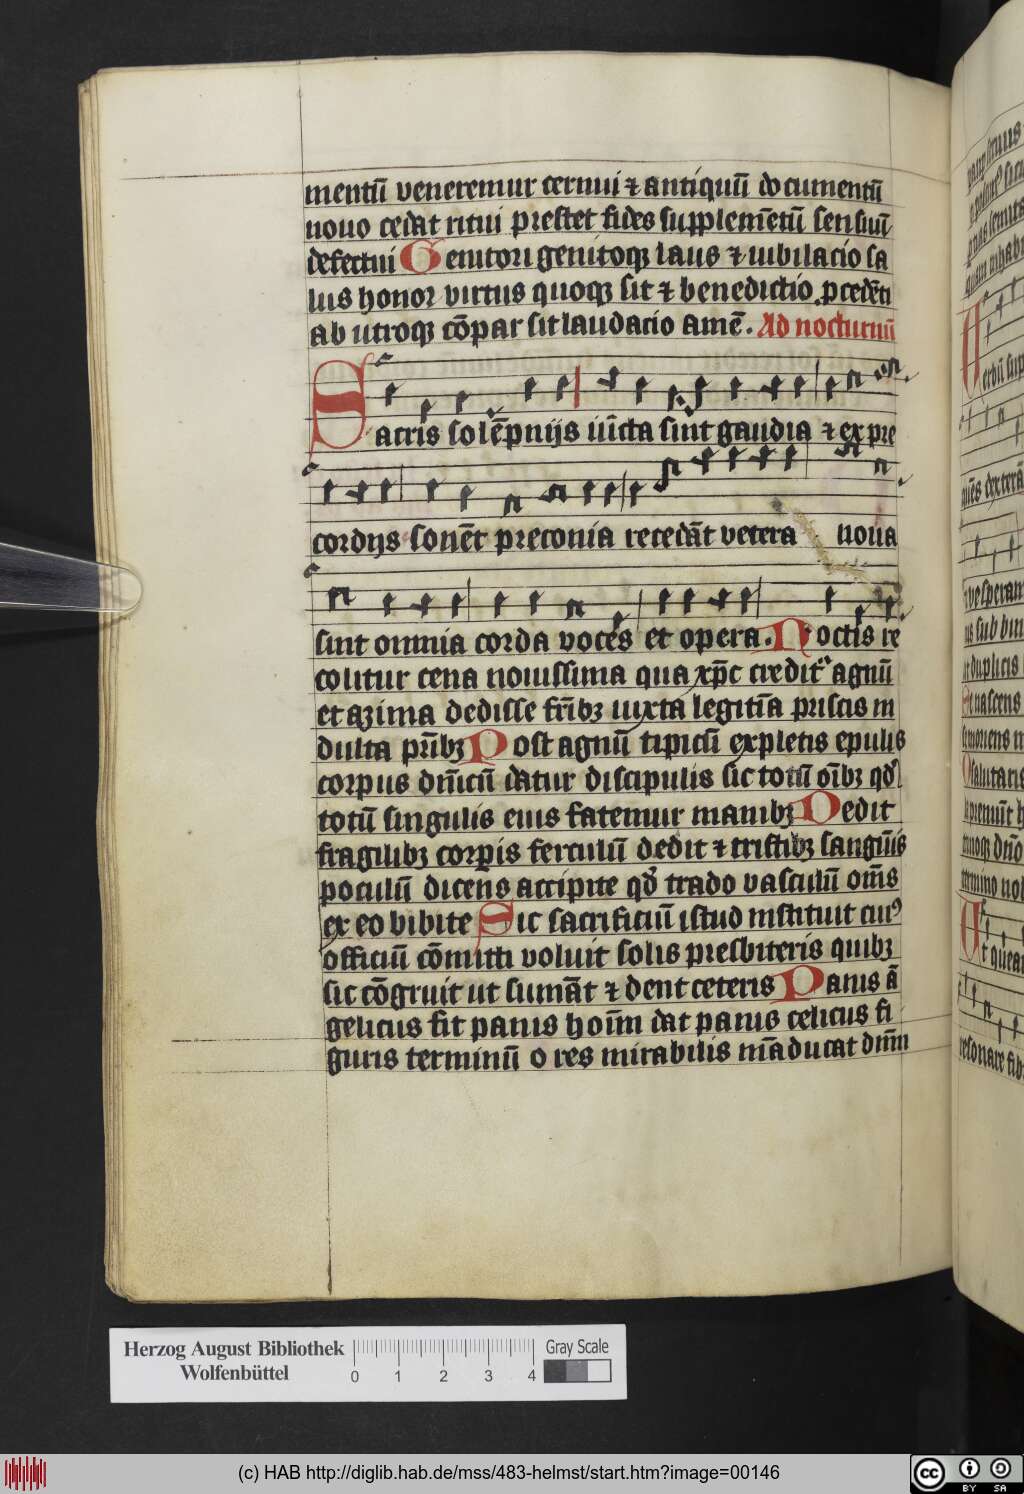 mentū veneremur cernui ⁊ antiquū documentū
nouo cedat ritui prestet fides supplemētū sensuū
defectui Genitori genitoqꝫ laus ⁊ iubilacio sa
lus honor virtus quoqꝫ sit ⁊ benedictio ꝓcedēti
ab utroqꝫ cōpar sit laudacio amē. Ad nocturnū
Sacris solēpnijs iūcta sint gaudia ⁊ ex pre
cordijs sonēt preconia recedāt vetera noua
sint omnia corda voces et opera. Noctis re
colitur cena nouissima qua xp̄c creditᷣ agnū
et azima dedisse fr̄ibꝫ iuxta legitīa priscis in
dulta pr̄ibꝫ Post agnū tipicū expletis epulis
corpus dn̄icū datur discipulis sic totū oībꝫ qđ
totū singulis eius fatemur manibꝫ Dedit
fragilibꝫ corpis ferculū dedit ⁊ tristibꝫ sangūis
poculū dicens accipite qđ trado vasculū om̄s
ex eo bibite Sic sacrificiū istud instituit cuiꝰ
officiū cōmitti voluit solis presbiteris quibꝫ
sic cōgruit ut sumāt ⁊ dent ceteris Panis ā
gelicus fit panis hoīm dat panis celicus fi
guris terminū o res mirabilis māducat dnm̄
Herzog August Bibliothek
Wolfenbüttel
0 1 2 3 4
Gray Scale
(c) HAB http://diglib.hab.de/mss/483-helmst/start.htm?image=00146
cc BY SA